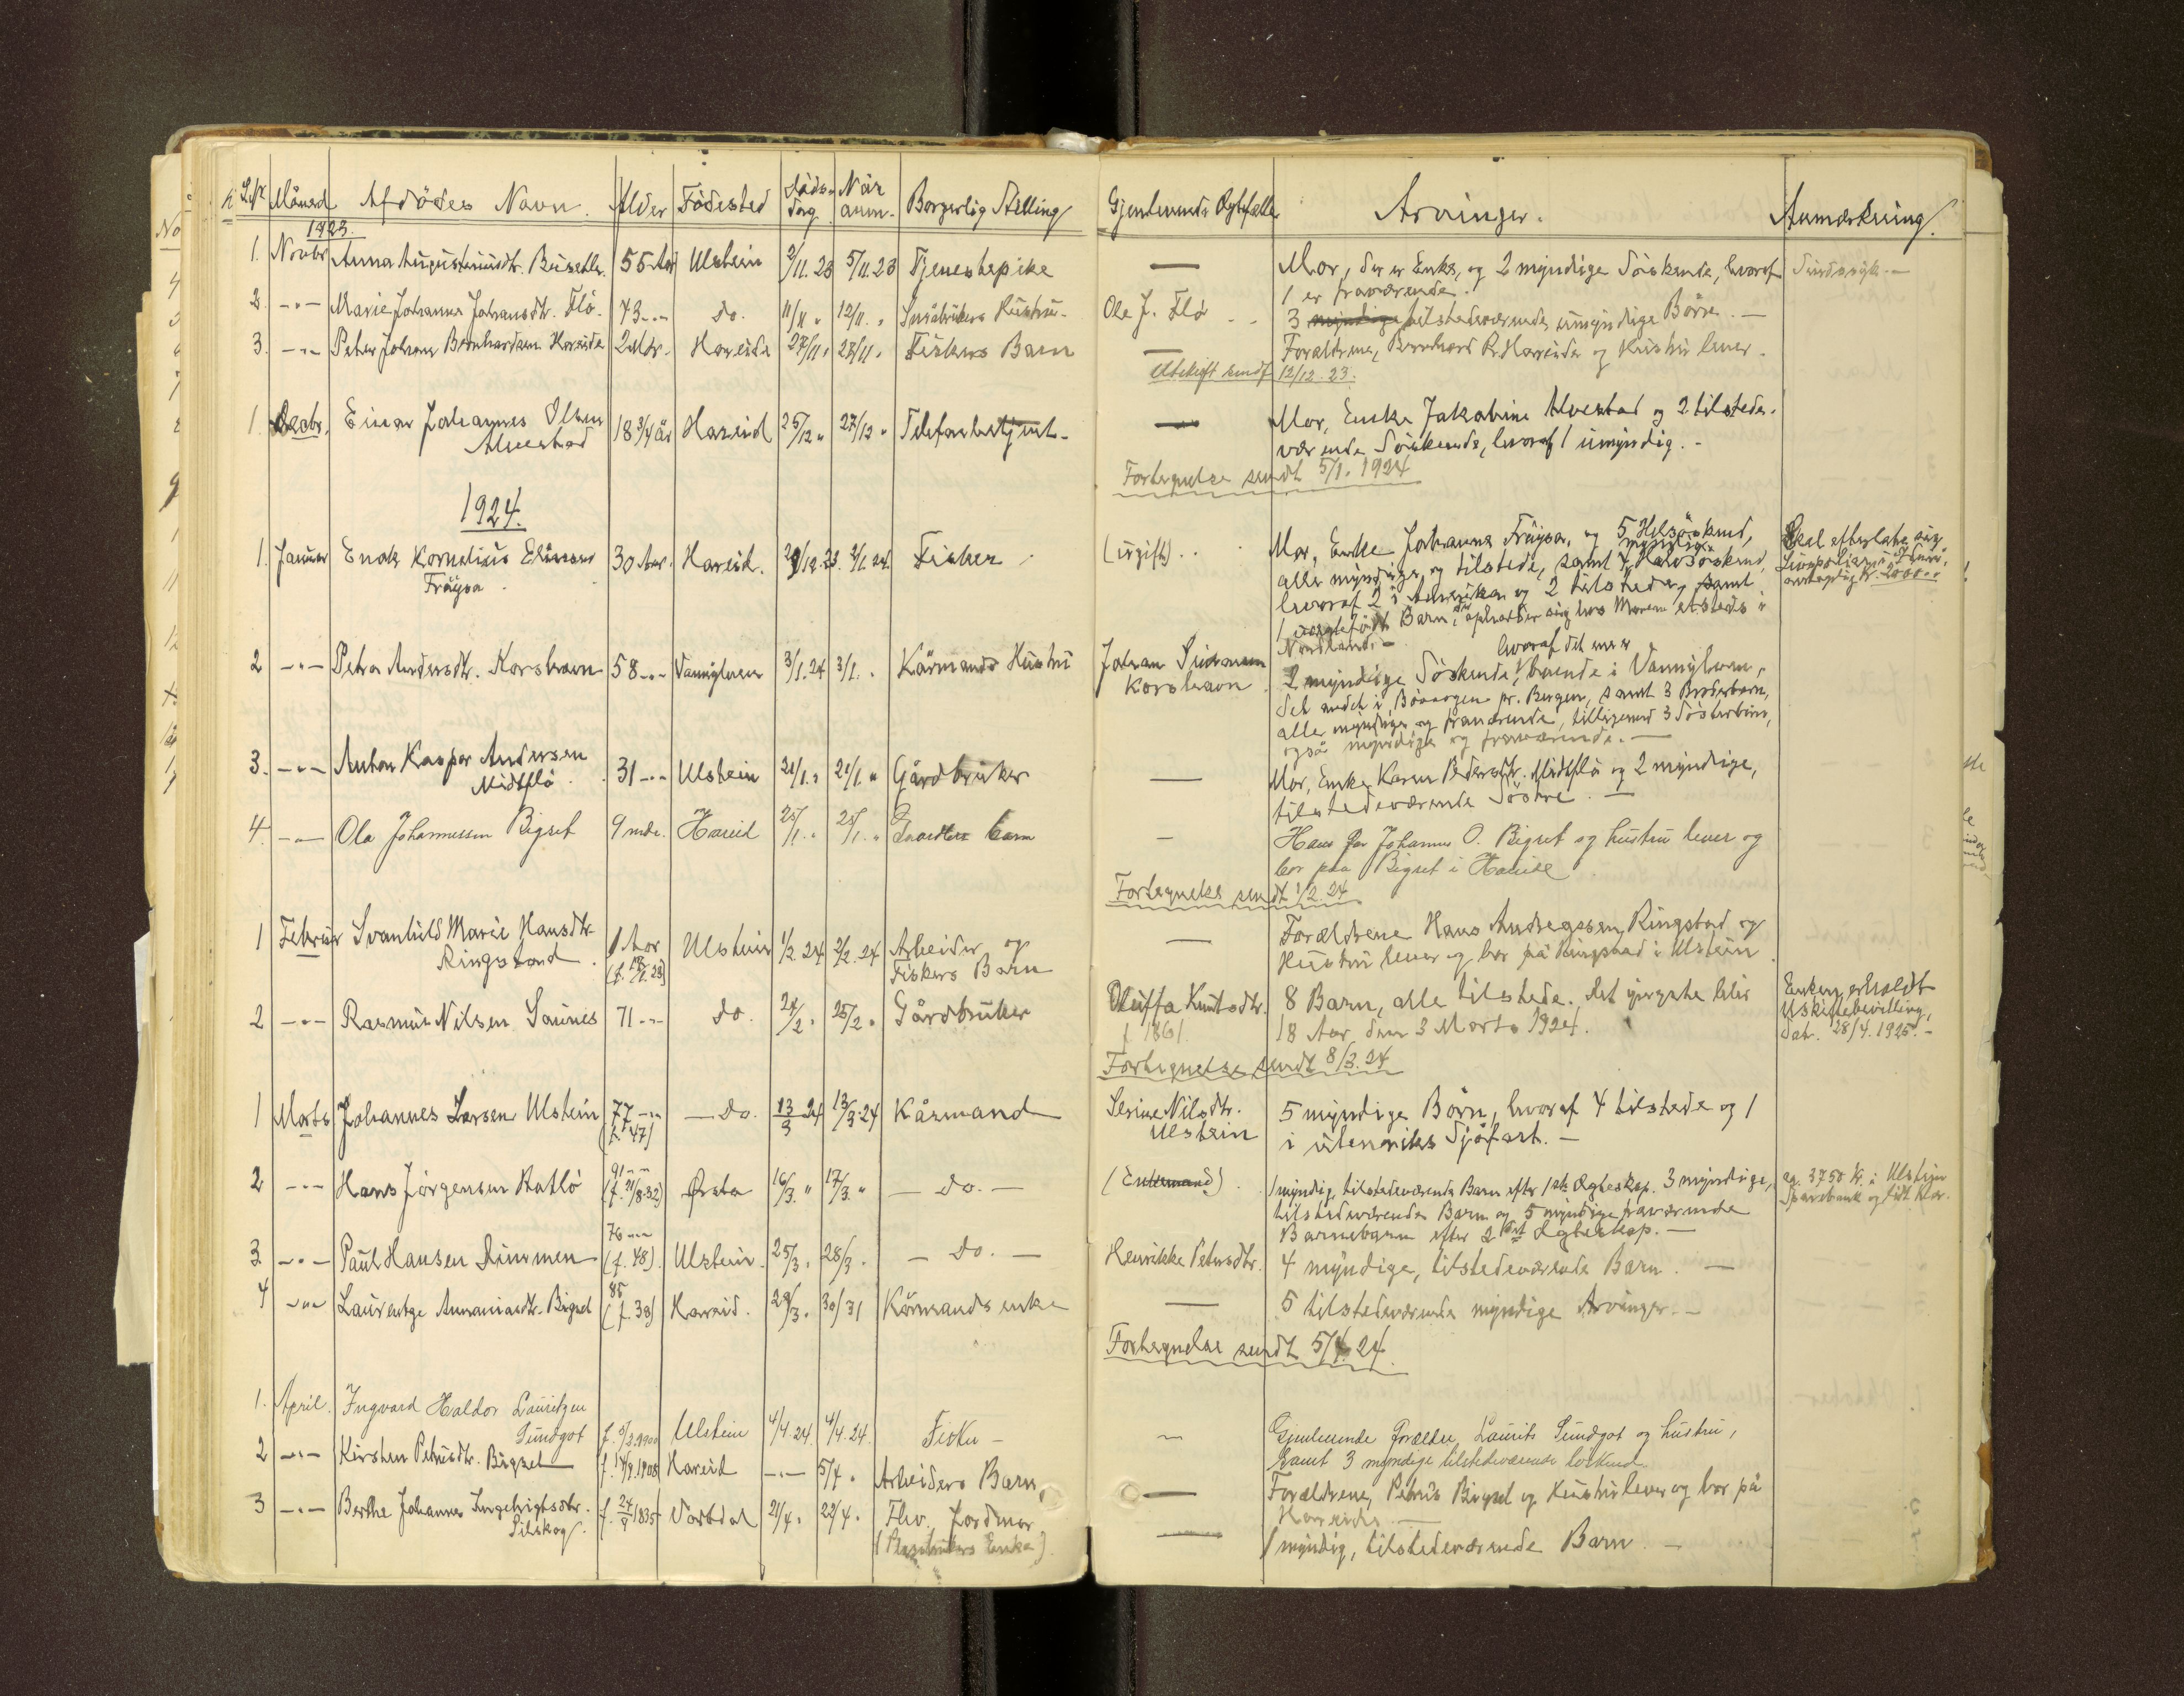 LNr Månad Afdødes Navn. Alder Fødested Døds-dag Når anm. Borgerlig Stilling Gjenlevende Ægtefælle Arvinger. Anmærkning.
1923.
1. Novbr Anna Augustinusdtr. 55 Aar Ulstein 2/11.23 5/11.23 Tjenestepike — Mor, der er Enke, og 2 myndige Søskende, hvoraf Sindssyk. —
1 er fraværende.
2. -"- Marie Johanna Johansdtr. Flø. 73 -"- do. 11/11 " 12/11. " Hustru. Ole J. Flø - - 3 myndige tilstedeværende umyndige Børn. —
3. -"- Peter Johan Bernhardsen Hareide 2 Mdr. Hareide 27/11. " 27/11. Fiskers Barn — Forældrene, Bernhard R. Hareide og Hustru lever.
Utskrift sendt 12/12. 23.
1. Decbr. Einar Johannes Olsen 18 3/4 år Hareid 25/12 " 27/12 " Telefonbetjent — Mor, Enke Jakobine Alvestad og 2 tilstede-
Alvestad værende Søskende, hvoraf 1 umyndig. -
Fortegnelse sendt 5/1. 1924
1924.
1. Januar Enok Kornelius 30 Aar. Hareid. 29/12.23. 2/1.24. Fisker (ugift) . . Mor, Enke Johanna Frøysa, og 5 Helsøskend, Skal efterlate sig
Frøysa alle myndige og tilstede, samt 4 myndige Halvsøskend,
hvoraf 2 i Amerika og 2 tilstede, samt
1 uægtefødt Barn, der opholder sig hos Moren etsteds i
Nordland. - hvoraf det ene er
2 -"- Petra Andersdtr. Korshavn 58 -"- Vannylven 3/1.24 3/1. " Kårmands Hustru Johan 2 myndige Søskende, boende i Vannylven,
Korshavn det andet i pr. Bergen, samt 3 Broderbørn,
alle myndige og fraværende, tilligemed 3 Søsterbørn,
også myndige og fraværende. —
3. -"- Anton Kaspar Andersen 31 -"- Ulstein 21/1. " 21/1. " Gårdbruker — Mor, Enke Karen Pedersdtr. Midtflø og 2 myndige,
Midtflø tilstedeværende Søstre. —
4. -"- Ola Johannessen Bigset 9 mdr. Hareid 25/1. " 25/1. " barn — Hans far Johannes O. Bigset og hustru lever og
bor paa Bigset i Hareid
Fortegnelse sendt 1/2. 24
1 Februar Svanhild Marie Hansdtr 1 Aar Ulstein 1/2 24 2/2. 24 Arbeider og — Forældrene Hans Andreassen Ringstad og
Ringstad. Fiskers Barn Hustru lever og bor på Ringstad i Ulstein
2 -"- Rasmus Nilsen Saunes 71 -"- do. 24/2. " 25/2 " Gårdbruker Oluffa Knutsdtr. 8 Barn, alle tilstede. Det yngste blir Enken erholdt
f 1861. 18 Aar den 3 Marts 1924. Uskiftebevilling,
dat. 28/4. 1925. -
Fortegnelse sendt 8/3. 24
1 Marts Johannes Larsen Ulstein 77 -"- — do. 13/3 24 13/3.24 Kårmand Serine Nilsdtr. 5 myndige Børn, hvoraf 4 tilstede og 1
(f. 47) Ulstein i utenriks Sjøfart. —
2 -"- Hans Jørgensen 91 -"- (f. 21/8.32) Ørsta 16/3. " 17/3. " — do. — (Enkemand). 1 myndig, tilstedeværende Barn efter 1ste Ægteskap. 3 myndige, 3750 kr. i Ulstein
tilstedeværende Barn og 5 myndige fraværende Sparebank og lidt
Barnebarn efter 2det Ægteskap. —
3 -"- Paul Hansen Dimmen 76 -"- (f. 48). Ulstein. 25/3. " 28/3. — do. — Henrikke Petersdtr. 4 myndige, tilstedeværende Barn. —
4 -"- Laurentze Ananiasdtr. Bigset 85 (f. 38) Hareid. 29/3. " 30/31 Kårmands enke — 5 tilstedeværende myndige Arvinger. -
Fortegnelse sendt 5/4. 24.
1. April. Ingvard Haldor Lauritzen
Sundgot f. 5/2.1900 Ulstein 4/4.24. 4/4.24. Fisker - — Gjenlevende forældre Laurits Sundgot og hustru,
samt 3 myndige tilstedeværende søskend.
2 -"- Kirsten Petrusdtr. Bigset f. 14/9.1908 Hareid -"- 5/4 " Arbeiders Barn, — Forældrene, Petrus Bigset og Hustru lever og bor på
Hareide. —
3 -"- Berthe Johanne Ingebrigtsdtr. f. 24/9 1835 Vartdal 21/4. " 22/4. " Fhv. Jordmor — 1 myndig, tilstedeværende Barn. —
Pilskog. (Plassbrukers Enke).